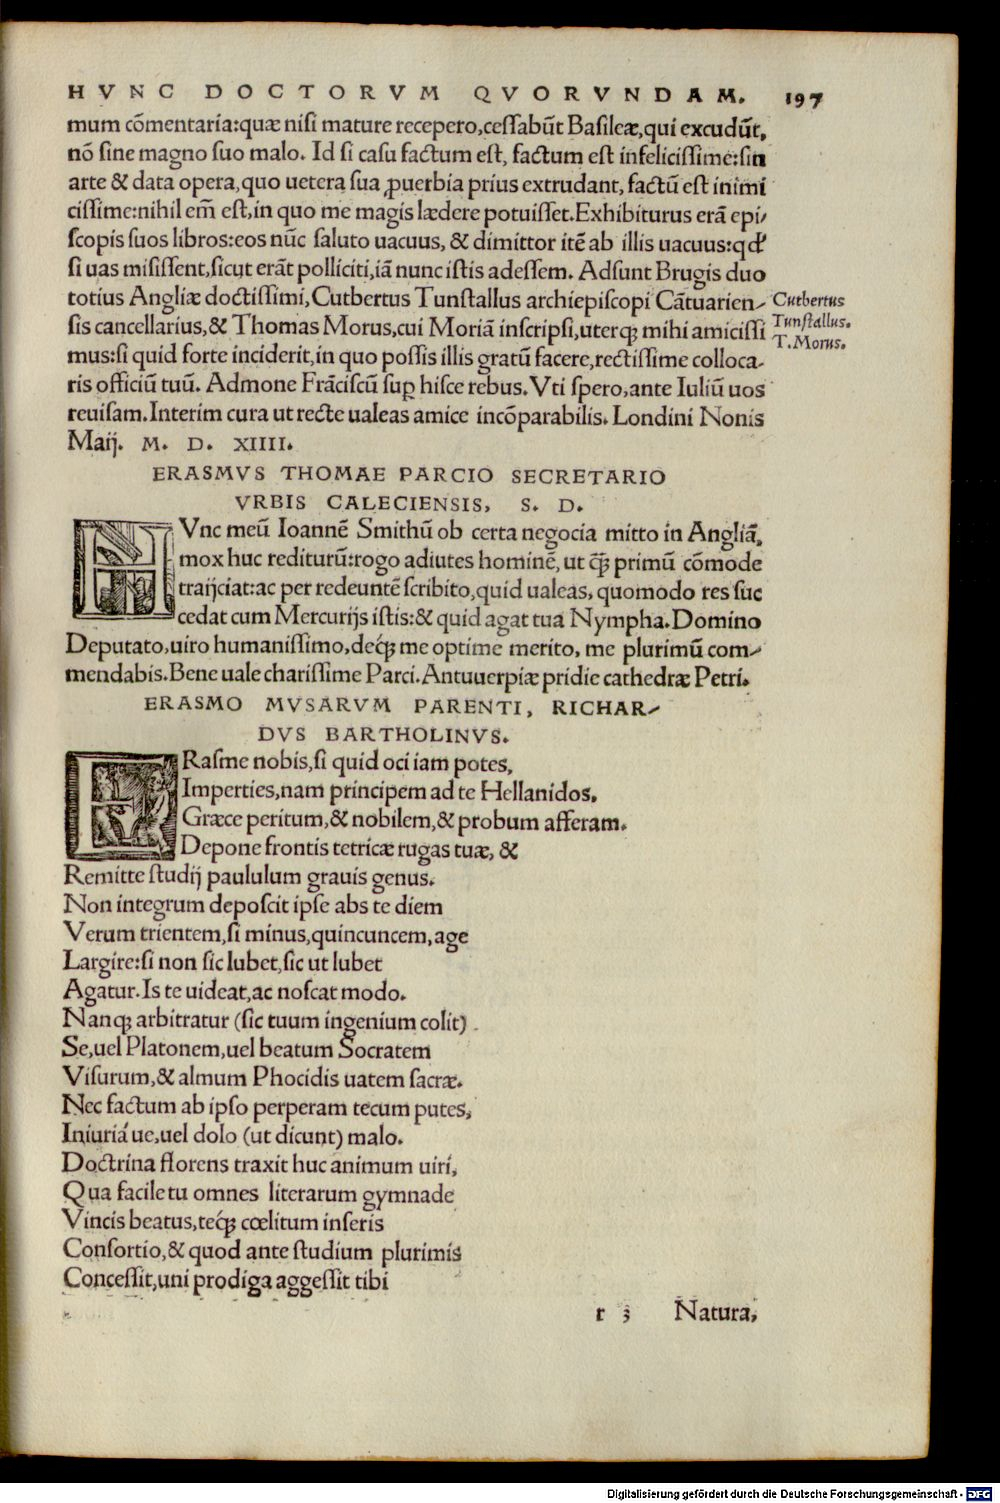 HVNC DOCTORVM QVORVNDAM. 197
mum cõmentaria:quæ nisi mature recepero,cessabũt Basileæ,qui excudũt,
nõ sine magno suo malo. Id si casu factum est, factum est infelicissime:sin
arte & data opera,quo uetera sua ꝓuerbia prius extrudant, factũ est inimi
cissime:nihil em̃ est,in quo me magis lædere potuisset.Exhibiturus erã epi/
scopis suos libros:eos nũc saluto uacuus, & dimittor itẽ ab illis uacuus:qđ
si uas misissent,sicut erãt polliciti,iã nunc istis adessem. Adsunt Brugis duo
totius Angliæ doctissimi,Cutbertus Tunstallus archiepiscopi Cãtuarien-
sis cancellarius,& Thomas Morus,cui Moriã inscripsi,uterqꝫ mihi amicissi
mus:si quid forte inciderit,in quo possis illis gratũ facere,rectissime colloca-
ris officiũ tuũ. Admone Frãciscũ suꝑ hisce rebus. Vti spero,ante Iuliũ uos
reuisam.Interim cura ut recte ualeas amice incõparabilis. Londini Nonis
Maij. M. D. XIIII.
Cutbertus
Tunstallus.
T.Morus.
ERASMVS THOMAE PARCIO SECRETARIO
VRBIS CALECIENSIS, S. D.
NVnc meũ Ioannẽ Smithũ ob certa negocia mitto in Angliã,
mox huc rediturũ:rogo adiutes hominẽ, ut q̃ꝫ primũ cõmode
traijciat:ac per redeuntẽ scribito,quid ualeas, quomodo res suc
cedat cum Mercurijs istis:& quid agat tua Nympha.Domino
Deputato,uiro humanissimo,deq́ꝫ me optime merito, me plurimũ com-
mendabis.Bene uale charissime Parci.Antuuerpiæ pridie cathedræ Petri.
ERASMO MVSARVM PARENTI, RICHAR-
DVS BARTHOLINVS.
ERasme nobis,si quid oci iam potes,
Imperties,nam principem ad te Hellanidos,
Græce peritum,& nobilem,& probum afferam.
Depone frontis tetricæ rugas tuæ, &
Remitte studij paululum grauis genus.
Non integrum deposcit ipse abs te diem
Verum trientem,si minus,quincuncem,age
Largire:si non sic lubet,sic ut lubet
Agatur.Is te uideat,ac noscat modo.
Nanqꝫ arbitratur (sic tuum ingenium colit)
Se,uel Platonem,uel beatum Socratem
Visurum,& almum Phocidis uatem sacræ.
Nec factum ab ipso perperam tecum putes,
Iniuriá ue,uel dolo (ut dicunt) malo.
Doctrina florens traxit huc animum uiri,
Qua facile tu omnes literarum gymnade
Vincis beatus,teq́ꝫ cœlitum inseris
Consortio,& quod ante studium plurimis
Concessit,uni prodiga aggessit tibi
r 3 Natura,
Digitalisierung gefördert durch die Deutsche Forschungsgemeinschaft - DFG